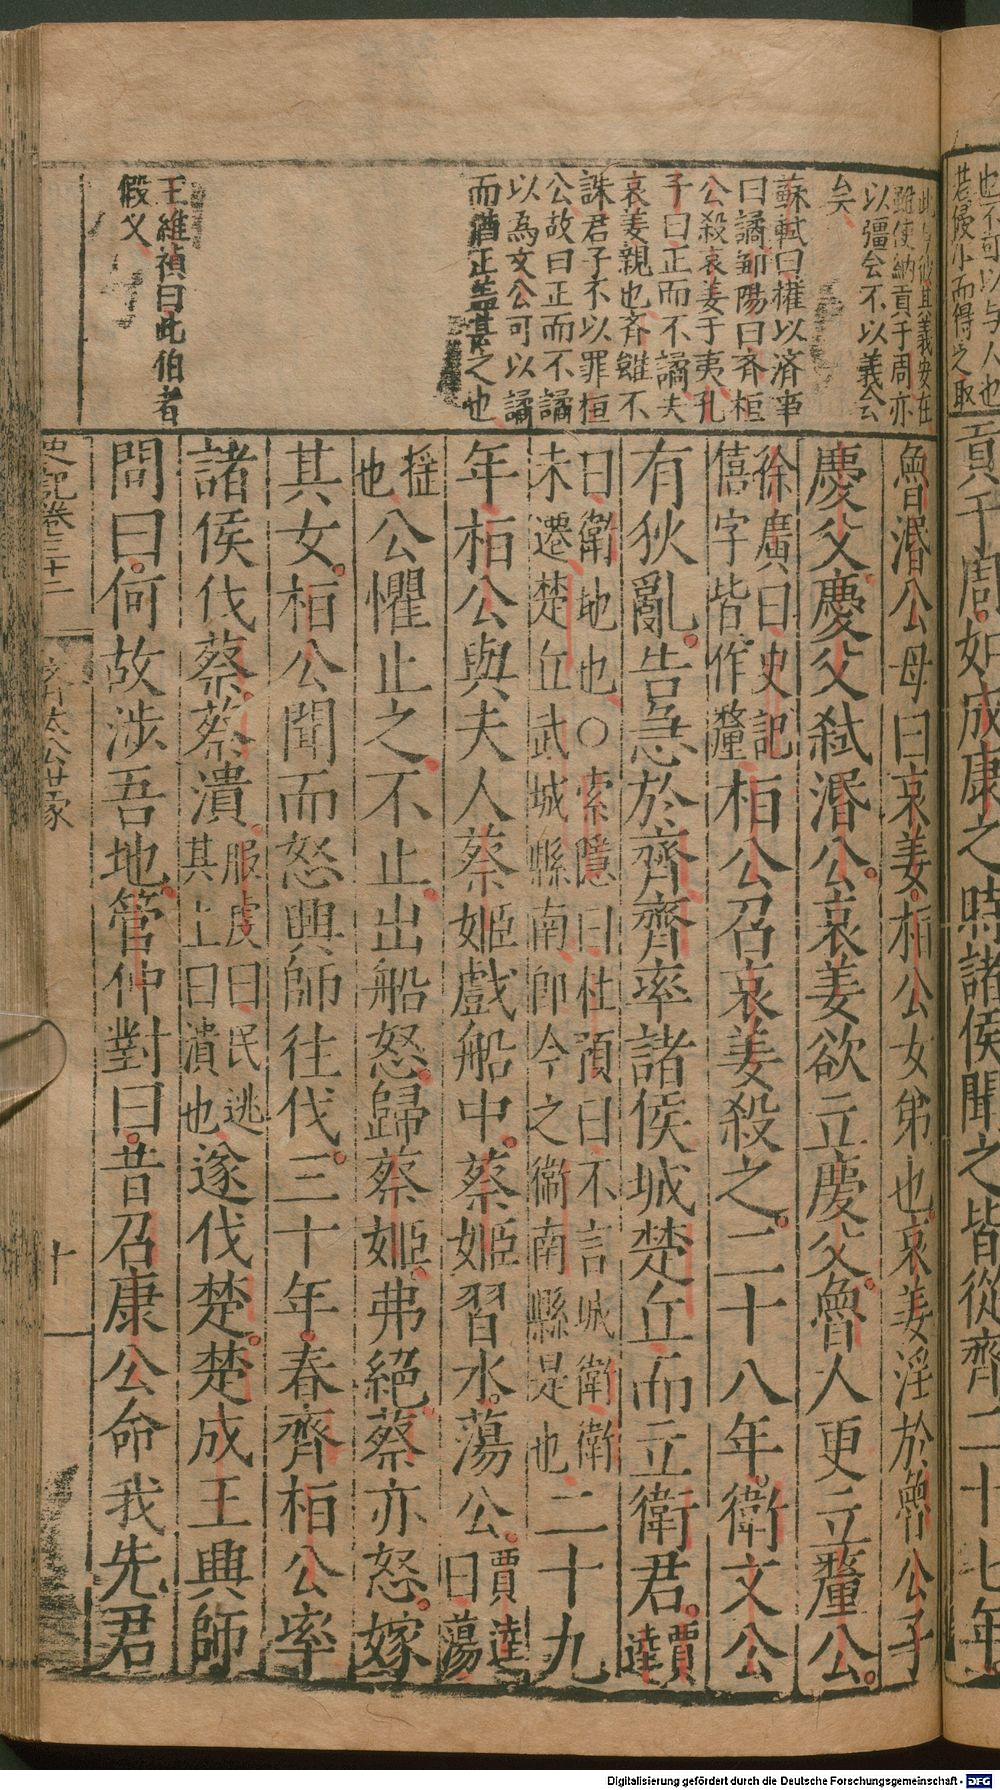 也不可以与人也
若侵小而得之取
貢于周如成康之時諸侯聞之皆從齊二十七年
此与彼其義安在
雖使納貢于周亦
以彊会不以義会
矣
蘇軾曰權以済事
曰譎鄒陽曰斉桓
公殺哀姜于夷孔
子曰正而不譎夫
哀姜親也斉雖不
誅君子不以罪桓
公故曰正而不譎
以為文公可以譎
而
之也
王維禎曰此伯者
假父
魯湣公母曰哀姜桓公女弟也哀姜淫於魯公子
慶父慶父弑湣公哀姜欲立慶父魯人更立釐公
徐廣曰史記
僖字皆作釐
桓公召哀姜殺之二十八年衛文公
有狄亂告急於齊齊率諸侯城楚丘而立衛君
賈逵
曰衛地也○索隱曰杜預曰不言城衛衛
未遷楚丘武城縣南即今之衛南縣是也
二十九
年桓公與夫人蔡姬戲船中蔡姬習水蕩公
賈逵
曰蕩
搖
也
公懼止之不止出船怒歸蔡姬弗絕蔡亦怒嫁
其女桓公聞而怒興師往伐三十年春齊桓公率
諸侯伐蔡蔡潰
服虔曰民逃
其上曰潰也
遂伐楚楚成王興師
問曰何故涉吾地管仲對曰昔召康公命我先君
史記卷三十二
齊太公世家
十
Digitalisierung gefördert durch die Deutsche Forschungsgemeinschaft - DFG